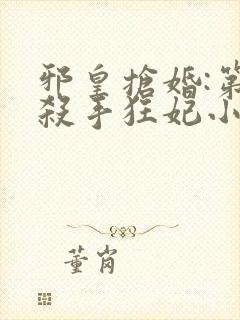 邪皇搶婚:第
殺手狂妃.小
董肖